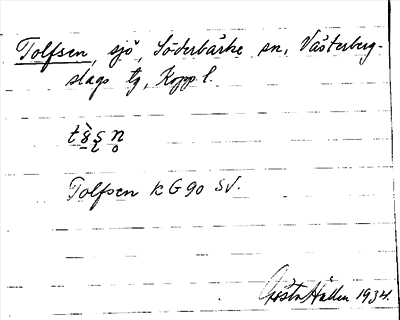 Tolfsen, sjö, Söderbärke sn, Västerberg-
slags tg, Kopp l.
Tolfsen k G 90 SV.
Gösta Hallen 1934.